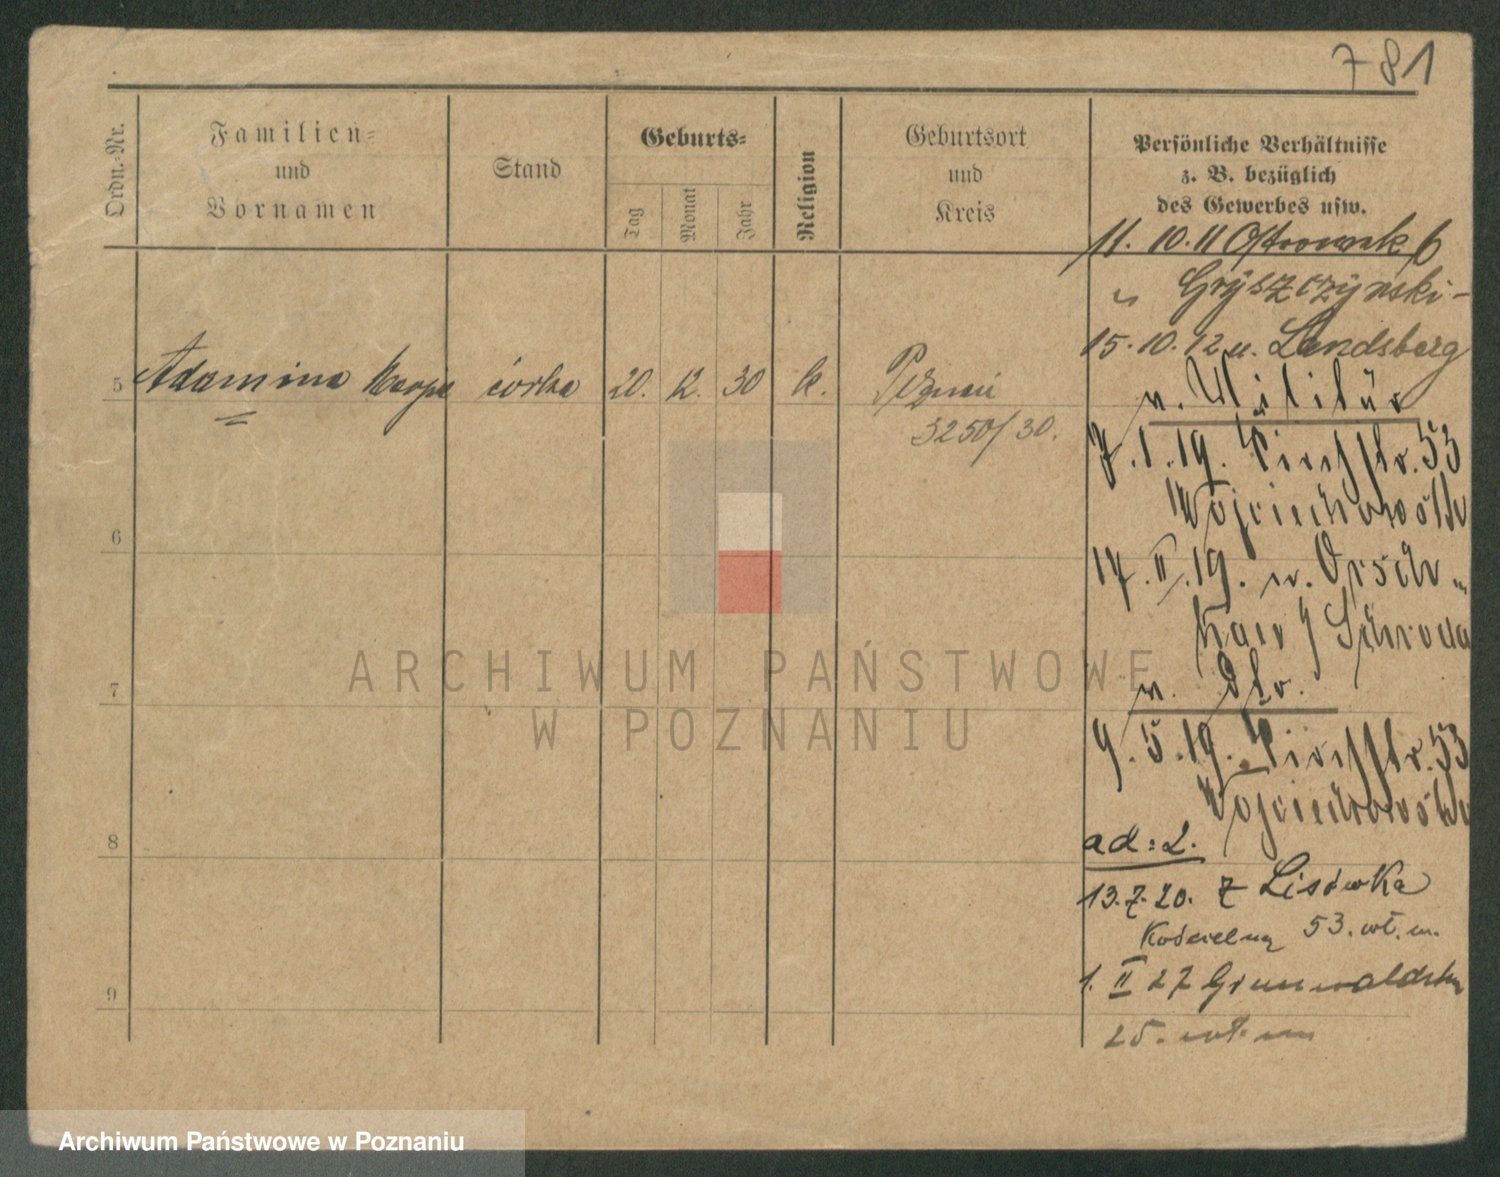 781
Ordn.-Nr.
Familien-
und
Vornamen
Stand
Geburts-
Tag
Monat
Jahr
Religion
Geburtsort
und
Kreis
Persönliche Verhältnisse
z. B. bezüglich
des Gewerbes usw.
11. 10. 11 Ostrowek 6
" Gryszczynski-
15. 10. 12 n. Landsberg
5 Adamina córka 20. 12. 30 k. Poznań
n. Militär
3250/30.
7. 1. 19. 53
Wojciechowski
6
17. II. 19. n.
Schroda
7
n.
9. 5. 19. 53
Wojciechowski
8
ad: 2.
13. 7. 20. z Lisówka
Kościelna 53. wł. m.
9
1. II 27 Grunwaldzka
25. wł. m
ARCHIWUM PAŃSTWOWE
W POZNANIU
Archiwum Państwowe w Poznaniu